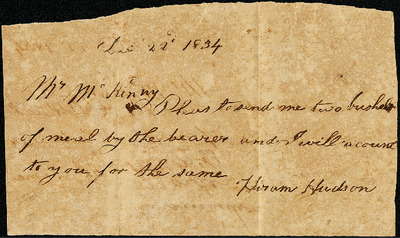 Dec 22d 1834
Mr McKinny
Pleas to send me two bushels
of meal by the bearer and I will acount
to you for the same
Hiram Hudson